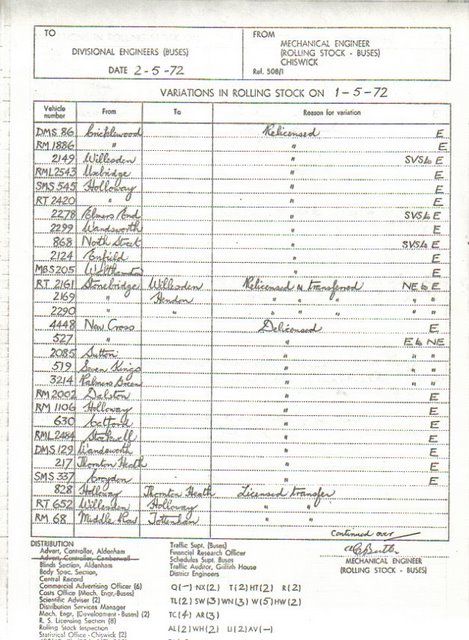 TO
DIVISIONAL ENGINEERS (BUSES)
DATE 2-5-72
FROM
MECHANICAL ENGINEER
(ROLLING STOCK - BUSES)
CHISWICK
Ref. 508/1
VARIATIONS IN ROLLING STOCK ON 1-5-72
Vehicle number From To Reason for variation
DMS 86 Cricklewood Relicensed E
RM 1886 " " E
2149 Willesden " SVS to E
RML 2543 Uxbridge " E
SMS 545 Holloway " E
RT 2420 " " E
2278 Elmers End " SVS to E
2299 Wandsworth " E
868 North Street " SVS to E
2124 Enfield " E
MBS 205 Walthamstow " E
RT 2161 Stonebridge Willesden Relicensed & transferred NE to E
2169 " Hendon " " " " "
2290 " " " " " " "
4448 New Cross Delicensed E
527 " " E to NE
2085 Sutton " " "
519 Seven Kings " " "
3214 Palmers Green " " "
RM 2002 Dalston " E
RM 1106 Holloway " E
630 Catford " E
RML 2484 Stockwell " E
DMS 129 Wandsworth " E
217 Thornton Heath " E
SMS 337 Croydon " E
828 Holloway Thornton Heath Licensed transfer
RT 652 Willesden Holloway " "
RM 68 Middle Row Tottenham " "
Continued over
MECHANICAL ENGINEER
(ROLLING STOCK - BUSES)
DISTRIBUTION
Advert. Controller, Aldenham
Advert. Controller, Camberwell
Blinds Section, Aldenham
Body Spec. Section,
Central Record
Commercial Advertising Officer (6)
Costs Office (Mech. Engr. Buses)
Scientific Adviser (2)
Distribution Services Manager
Mech. Engr. (Development - Buses) (2)
R. S. Licensing Section (8)
Rolling Stock Inspection
Statistical Office - Chiswick (2)
Traffic Supt. (Buses)
Financial Research Officer
Schedules Supt. Buses
Traffic Auditor, Griffith House
District Engineers
Q(-) NX(2) T(2) HT(2) R(2)
TL(2) SW(3) WN(3) W(5) HW(2)
TC(4) AR(3)
AL(2) WH(2) U(2) AV(-)